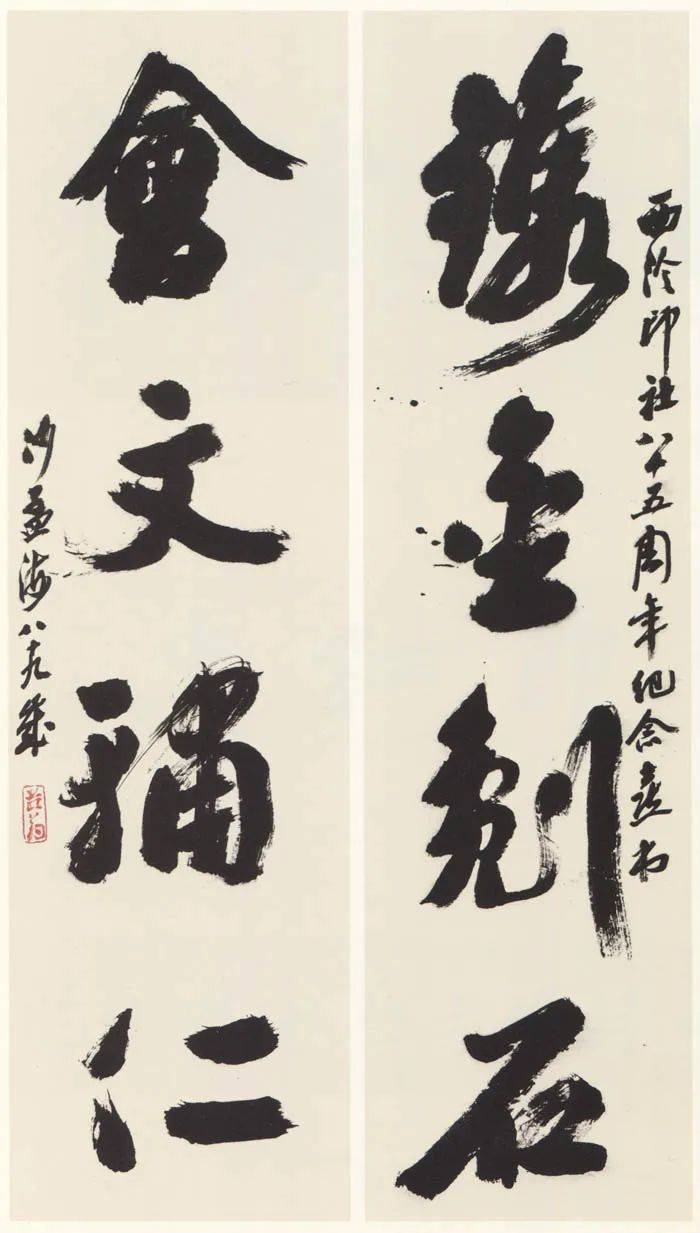 西泠印社八十五周年紀念書
鏤金刻石
會文輔仁
沙孟海八十九歲